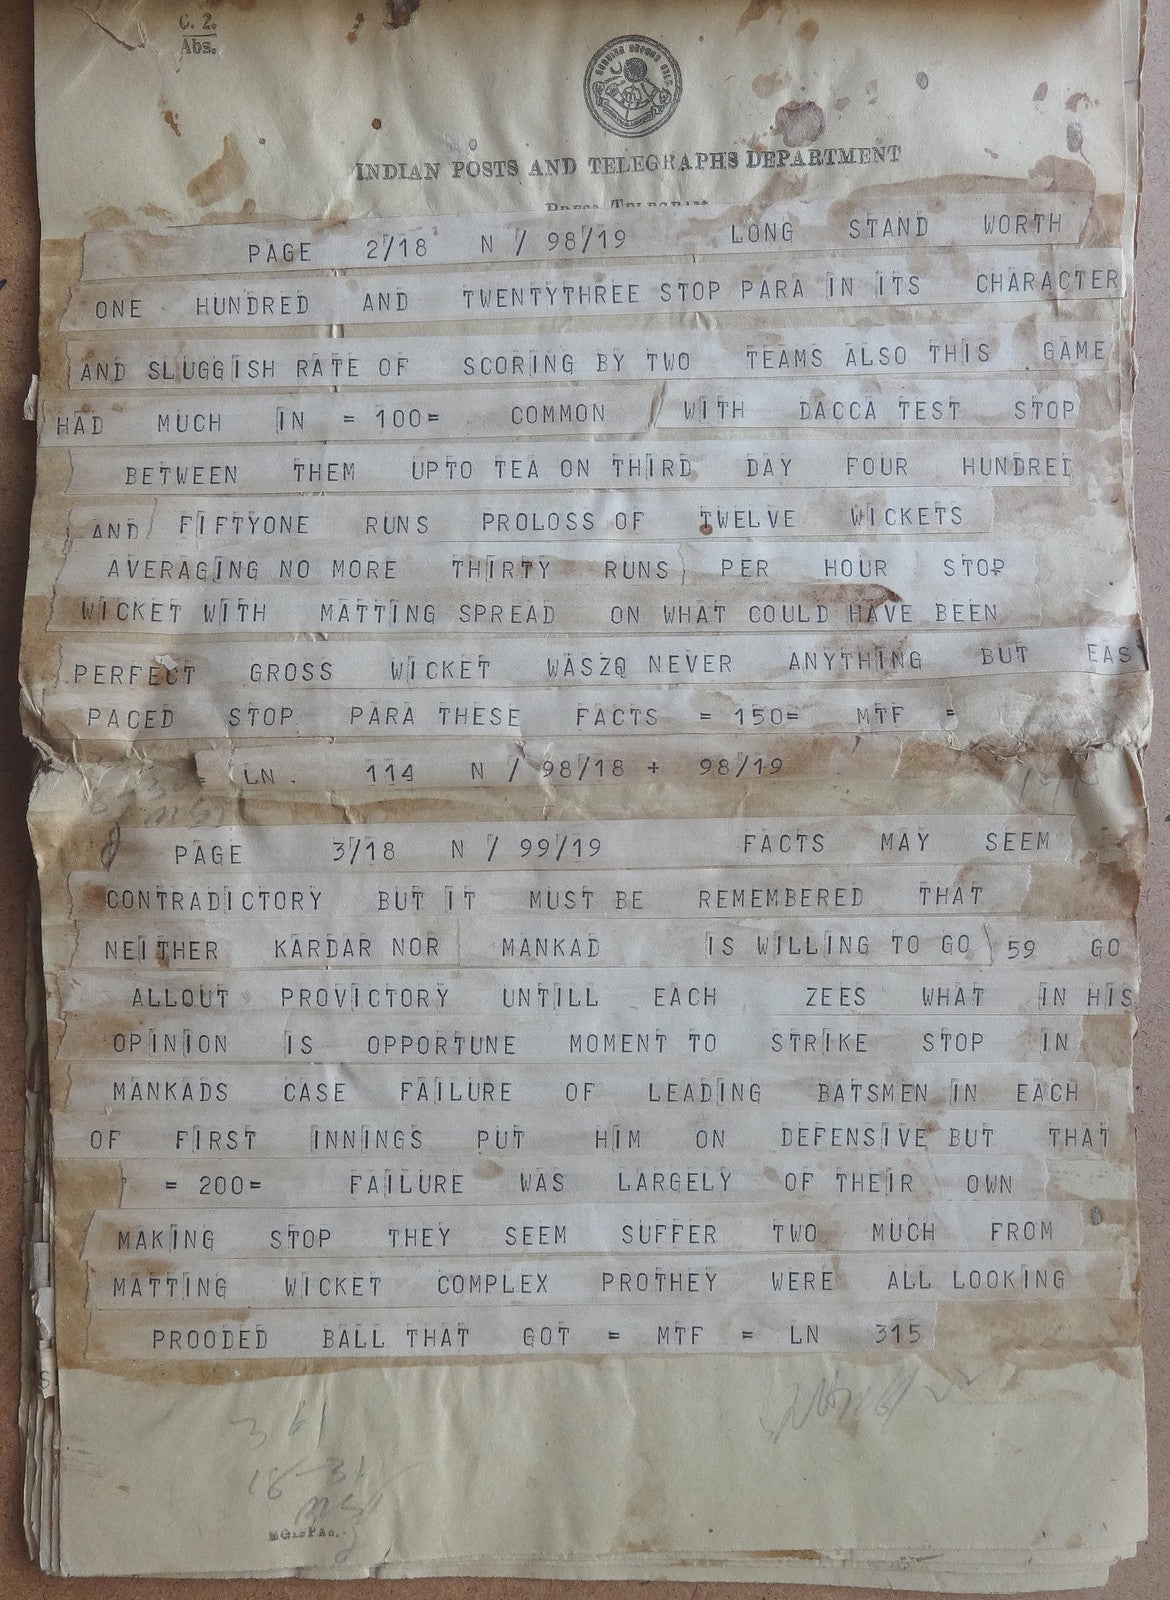 C. 2.
Abs.
INDIAN POSTS AND TELEGRAPHS DEPARTMENT
PRESS TELEGRAM
PAGE 2/18 N / 98/19 LONG STAND WORTH
ONE HUNDRED AND TWENTYTHREE STOP PARA IN ITS CHARACTER
AND SLUGGISH RATE OF SCORING BY TWO TEAMS ALSO THIS GAME
HAD MUCH IN = 100= COMMON WITH DACCA TEST STOP
BETWEEN THEM UPTO TEA ON THIRD DAY FOUR HUNDRED
AND FIFTYONE RUNS PROLOSS OF TWELVE WICKETS
AVERAGING NO MORE THIRTY RUNS PER HOUR STOP
WICKET WITH MATTING SPREAD ON WHAT COULD HAVE BEEN
PERFECT GROSS WICKET WASZQ NEVER ANYTHING BUT EAS
PACED STOP PARA THESE FACTS = 150= MTF =
= LN 114 N / 98/18 + 98/19
PAGE 3/18 N / 99/19 FACTS MAY SEEM
CONTRADICTORY BUT IT MUST BE REMEMBERED THAT
NEITHER KARDAR NOR MANKAD IS WILLING TO GO 59 GO
ALLOUT PROVICTORY UNTILL EACH ZEES WHAT IN HIS
OPINION IS OPPORTUNE MOMENT TO STRIKE STOP IN
MANKADS CASE FAILURE OF LEADING BATSMEN IN EACH
OF FIRST INNINGS PUT HIM ON DEFENSIVE BUT THAT
= 200= FAILURE WAS LARGELY OF THEIR OWN
MAKING STOP THEY SEEM SUFFER TWO MUCH FROM
MATTING WICKET COMPLEX PROTHEY WERE ALL LOOKING
PROODED BALL THAT GOT = MTF = LN 315